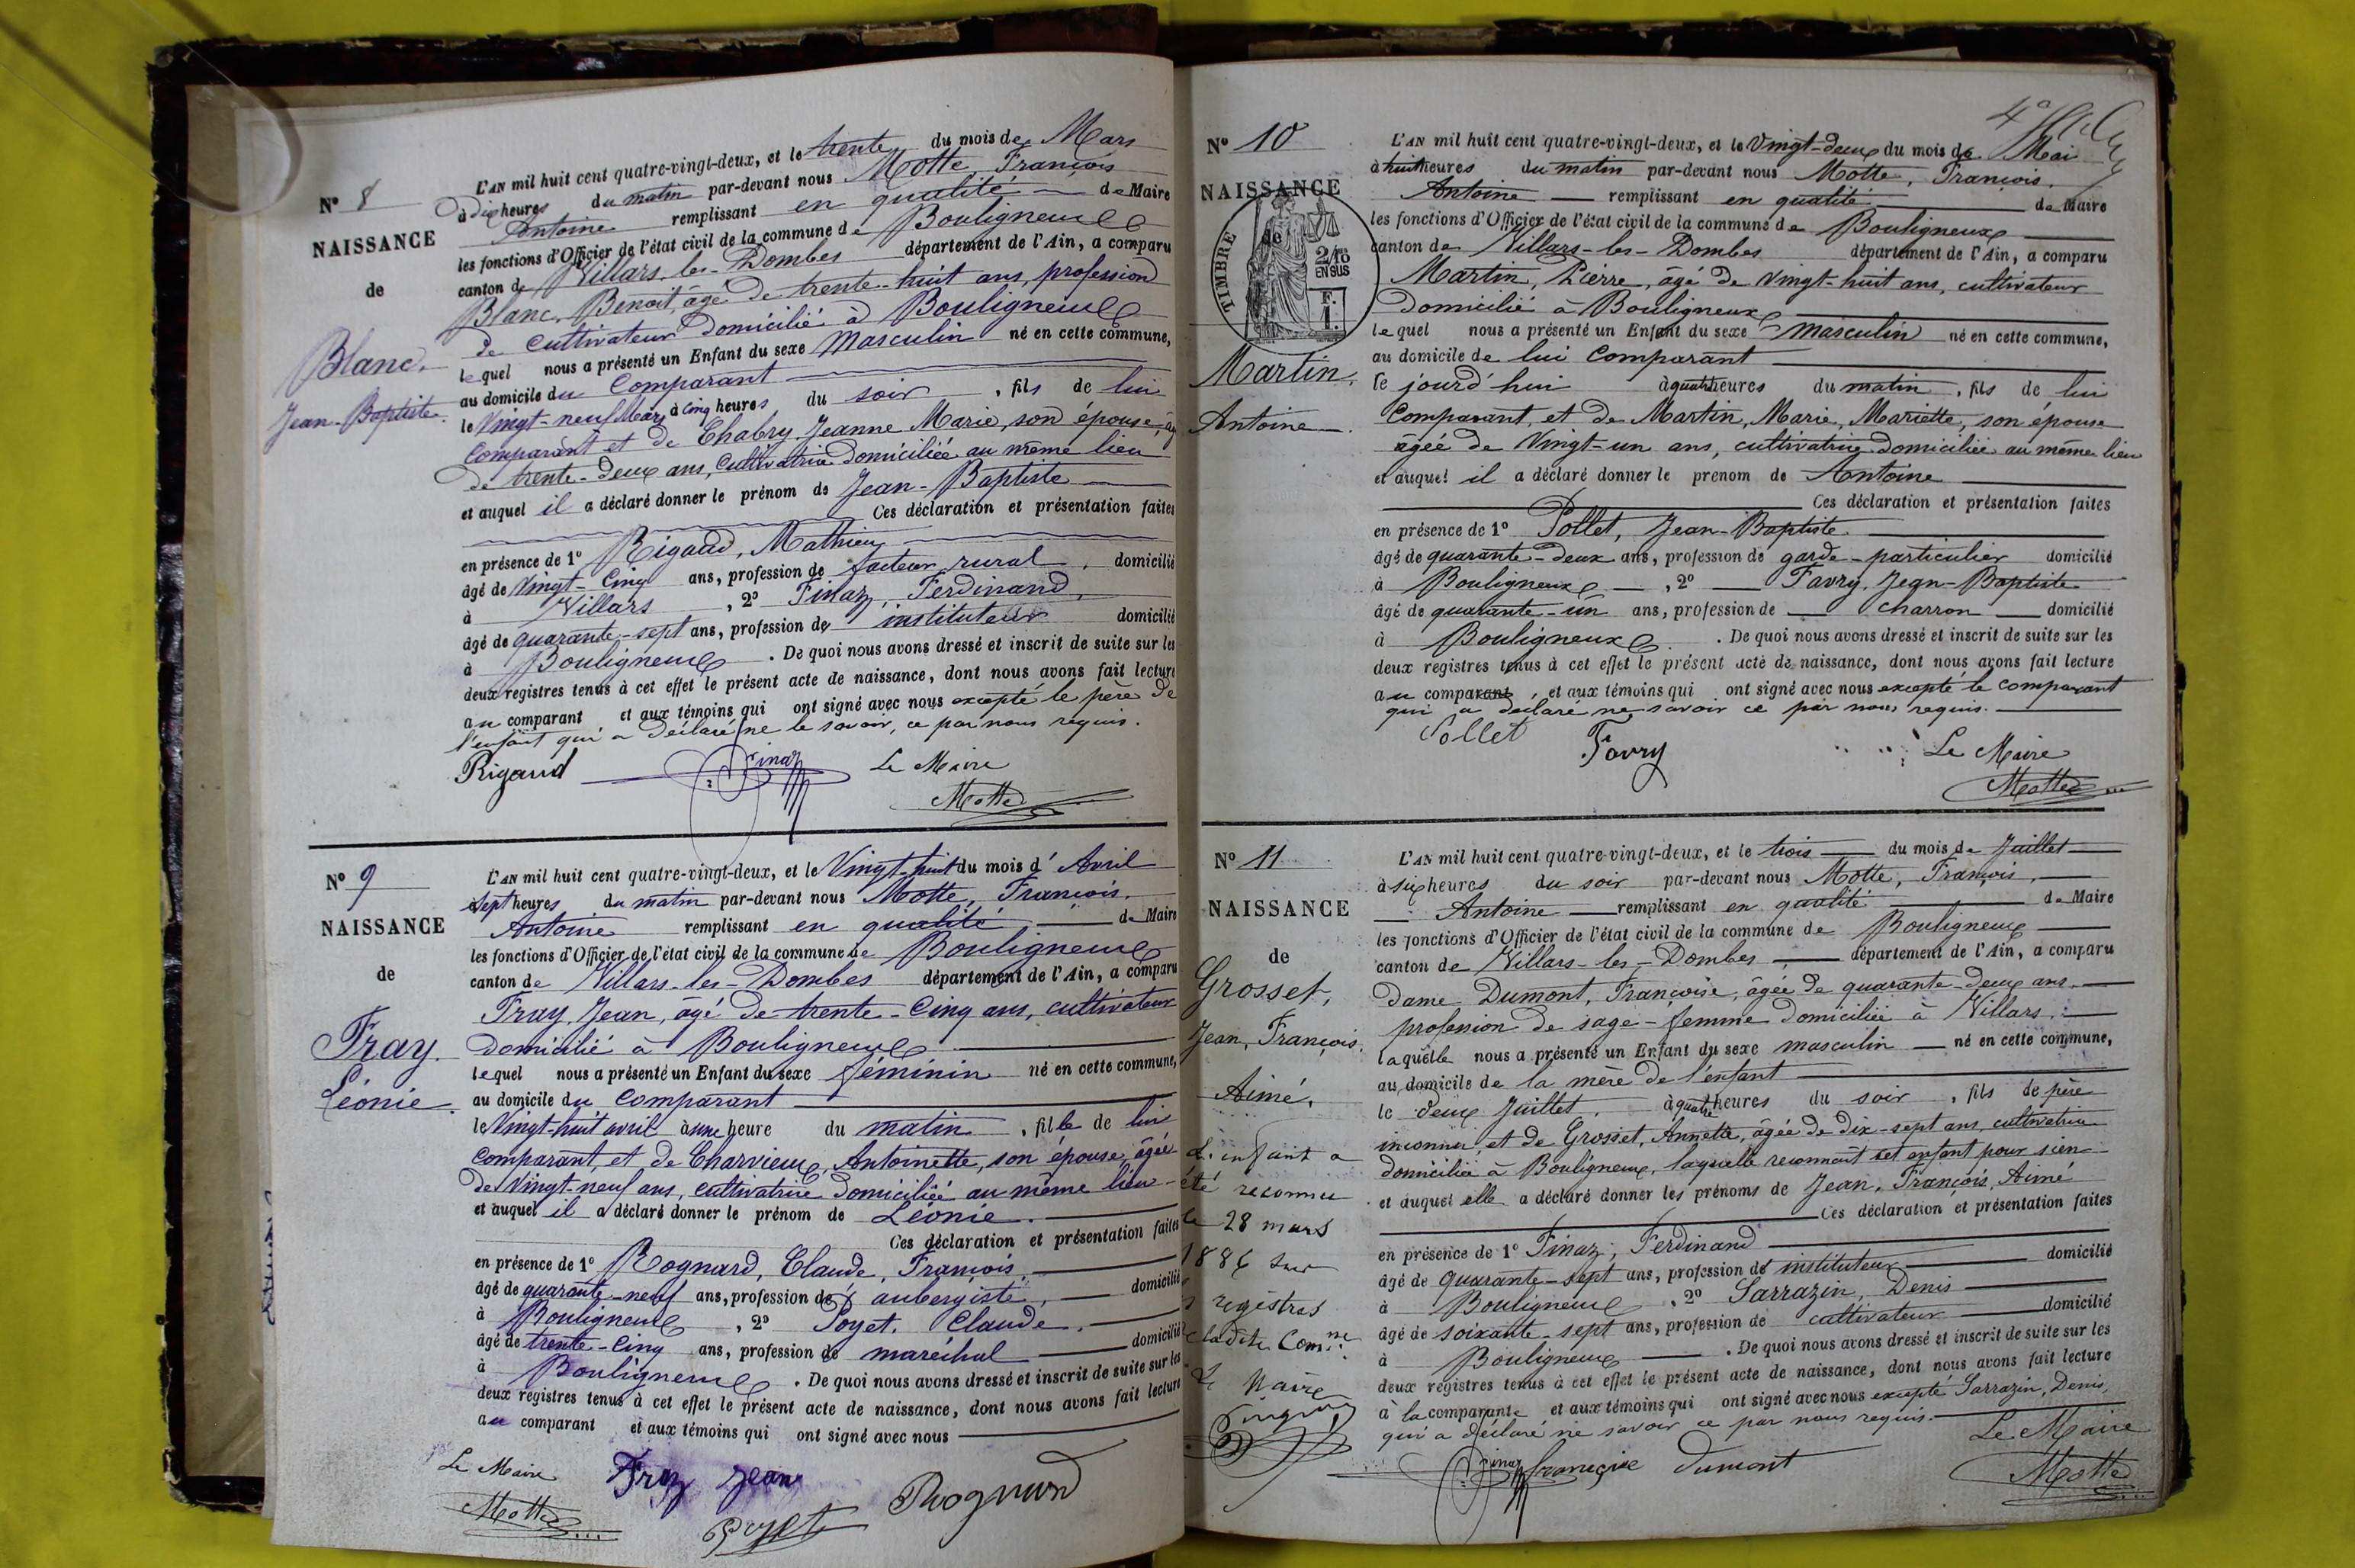 N° 8
NAISSANCE
de
Blanc.
Jean-Baptiste.
L'AN mil huit cent quatre-vingt-deux, et le trente du mois de Mars
à dix heures du matin par-devant nous Motte François
Antoine remplissant en qualité de Maire
les fonctions d'Officier de l'état civil de la commune de Bouligneux
canton de Villars-les-Dombes département de l'Ain, a comparu
Blanc, Benoit, âgé de trente-huit ans, profession
de cultivateur domicilié à Bouligneux
lequel nous a présenté un Enfant du sexe masculin né en cette commune,
au domicile du Comparant
le Vingt-neuf Mars à cinq heures du soir, fils de lui
Comparant et de Chabry, Jeanne Marie, son épouse, âg
de trente-deux ans, Cultivatrice domiciliée au même lieu
et auquel il a déclaré donner le prénom de Jean-Baptiste
Ces déclaration et présentation faites
en présence de 1° Rigaud, Mathieu
âgé de Vingt-Cinq ans, profession de facteur rural, domicilié
à Villars, 2° Finaz, Ferdinand,
âgé de quarante-sept ans, profession de instituteur domicilié
à Bouligneux. De quoi nous avons dressé et inscrit de suite sur les
deux registres tenus à cet effet le présent acte de naissance, dont nous avons fait lecture
au comparant et aux témoins qui ont signé avec nous excepté le père de
l'enfant qui a déclaré ne le savoir, ce par nous requis.
Rigaud Finaz Le Maire
Motte
N° 9
NAISSANCE
de
Fray.
Léonie.
L'AN mil huit cent quatre-vingt-deux, et le Vingt-huit du mois d'Avril
à sept heures du matin par-devant nous Motte, François,
Antoine remplissant en qualité de Maire
les fonctions d'Officier de l'état civil de la commune de Bouligneux
canton de Villars-les-Dombes département de l'Ain, a comparu
Fray, Jean, âgé de trente-Cinq ans, cultivateur
domicilié à Bouligneux
lequel nous a présenté un Enfant du sexe féminin né en cette commune,
au domicile du Comparant
le Vingt-huit avril à une heure du matin, fille de lui
Comparant, et de Charvieux, Antoinette, son épouse, âgée
de Vingt-neuf ans, cultivatrice domiciliée au même lieu
et auquel il a déclaré donner le prénom de Léonie.
Ces déclaration et présentation faites
en présence de 1° Rognard, Claude, François,
âgé de quarante-neuf ans, profession de aubergiste, domicilié
à Bouligneux, 2° Poyet, Claude,
âgé de trente-Cinq ans, profession de maréchal domicilié
à Bouligneux. De quoi nous avons dressé et inscrit de suite sur les
deux registres tenus à cet effet le présent acte de naissance, dont nous avons fait lecture
au comparant et aux témoins qui ont signé avec nous
Le Maire Fray Jean Rognard
Motte Poyet
N° 10
NAISSANCE
TIMBRE
de
2/10
EN SUS
F.
1.
Martin,
Antoine.
L'AN mil huit cent quatre-vingt-deux, et le Vingt-deux du mois de Mai
à huit heures du matin par-devant nous Motte, François,
Antoine remplissant en qualité de Maire
les fonctions d'Officier de l'état civil de la commune de Bouligneux
canton de Villars-les-Dombes département de l'Ain, a comparu
Martin, Pierre, âgé de Vingt-huit ans, cultivateur
domicilié à Bouligneux
lequel nous a présenté un Enfant du sexe masculin né en cette commune,
au domicile de lui Comparant
le jourd'hui à quatre heures du matin, fils de lui
Comparant, et de Martin, Marie, Mariette, son épouse
âgée de Vingt-un ans, cultivatrice domiciliée au même lieu
et auquel il a déclaré donner le prenom de Antoine
Ces déclaration et présentation faites
en présence de 1° Pollet, Jean-Baptiste
âgé de quarante-deux ans, profession de garde-particulier domicilié
à Bouligneux, 2° Favry, Jean-Baptiste
âgé de quarante-un ans, profession de charron domicilié
à Bouligneux. De quoi nous avons dressé et inscrit de suite sur les
deux registres tenus à cet effet le présent acte de naissance, dont nous avons fait lecture
au comparant, et aux témoins qui ont signé avec nous excepté le comparant
qui a déclaré ne savoir ce par nous requis.
Pollet Favry Le Maire
Motte
N° 11
NAISSANCE
de
Grosset,
Jean, François,
Aimé,
L'enfant a
été reconnu
le 28 mars
1886 sur
registres
ladite Comne
Le Maire
L'AN mil huit cent quatre-vingt-deux, et le trois du mois de Juillet
à six heures du soir par-devant nous Motte, François,
Antoine remplissant en qualité de Maire
les fonctions d'Officier de l'état civil de la commune de Bouligneux
canton de Villars-les-Dombes, département de l'Ain, a comparu
Dame Dumont, Françoise, âgée de quarante-deux ans,
profession de sage-femme domiciliée à Villars.
laquelle nous a présenté un Enfant du sexe masculin né en cette commune,
au domicile de la mère de l'enfant
le deux Juillet, à quatre heures du soir, fils de père
inconnu et de Grosset, Annette, âgée de dix-sept ans, cultivatrice
domiciliée à Bouligneux, laquelle reconnait cet enfant pour sien
et auquel elle a déclaré donner les prénoms de Jean, François, Aimé
Ces déclaration et présentation faites
en présence de 1° Finaz, Ferdinand
âgé de quarante-sept ans, profession de instituteur domicilié
à Bouligneux, 2° Sarrazin, Denis
âgé de soixante-sept ans, profession de cultivateur domicilié
à Bouligneux. De quoi nous avons dressé et inscrit de suite sur les
deux registres tenus à cet effet le présent acte de naissance, dont nous avons fait lecture
à la comparante et aux témoins qui ont signé avec nous excepté Sarrazin, Denis,
qui a déclaré ne savoir ce par nous requis.
Finaz françoise dumont Le Maire
Motte